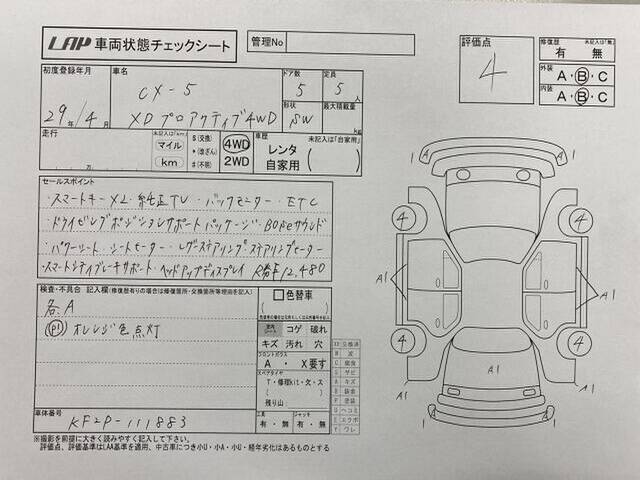 LAP 車両状態チェックシート
管理No
評価点
4
修復歴
未記入は「無」
有 ・ 無
外装
A・B・C
内装
A・B・C
初度登録年月
29年/4月
車名
CX-5
XD プロアクティブ 4WD
ドア数
5
定員
5人
形状
SW
最大積載量
kg
走行
万
未記入は「km」
マイル
km
$ (交換)
* (改ざん)
# (不明)
4WD
2WD
車歴
未記入は「自家用」
レンタ
自家用
セールスポイント
・スマートキーX2・純正TV・バックモニター・ETC
・ドライビングポジションサポートパッケージ・BOSEサウンド
・パワーシート・シートヒーター・レザーステアリング・ステアリングヒーター
・スマートシティブレーキサポート・ヘッドアップディスプレイ R券¥12,480
検査・不具合 記入欄(修復歴有りの場合は修復箇所・交換箇所等理由を記入)
各A
オレンジ色点灯
色替車
コゲ 破れ
キズ 汚れ 穴
フロントガラス
A ・ X要す
スペアタイヤ
T・修理kit・欠・ス
残り山
工具
有・無
ジャッキ
有・無
XX 交換済
W 波
C 腐食
S サビ
A キズ
B 鈑金
P 塗装
U ヘコミ
E エクボ
Y ワレ
車体番号
KF2P-111883
※撮影を前提に大きく読みやすく記入して下さい。
評価点、評価基準はLAA基準を適用、中古車につき小U・小A・小U・経年劣化はあるものとする
1
1
4
4
A1
A1
4
4
A1
A1
A1